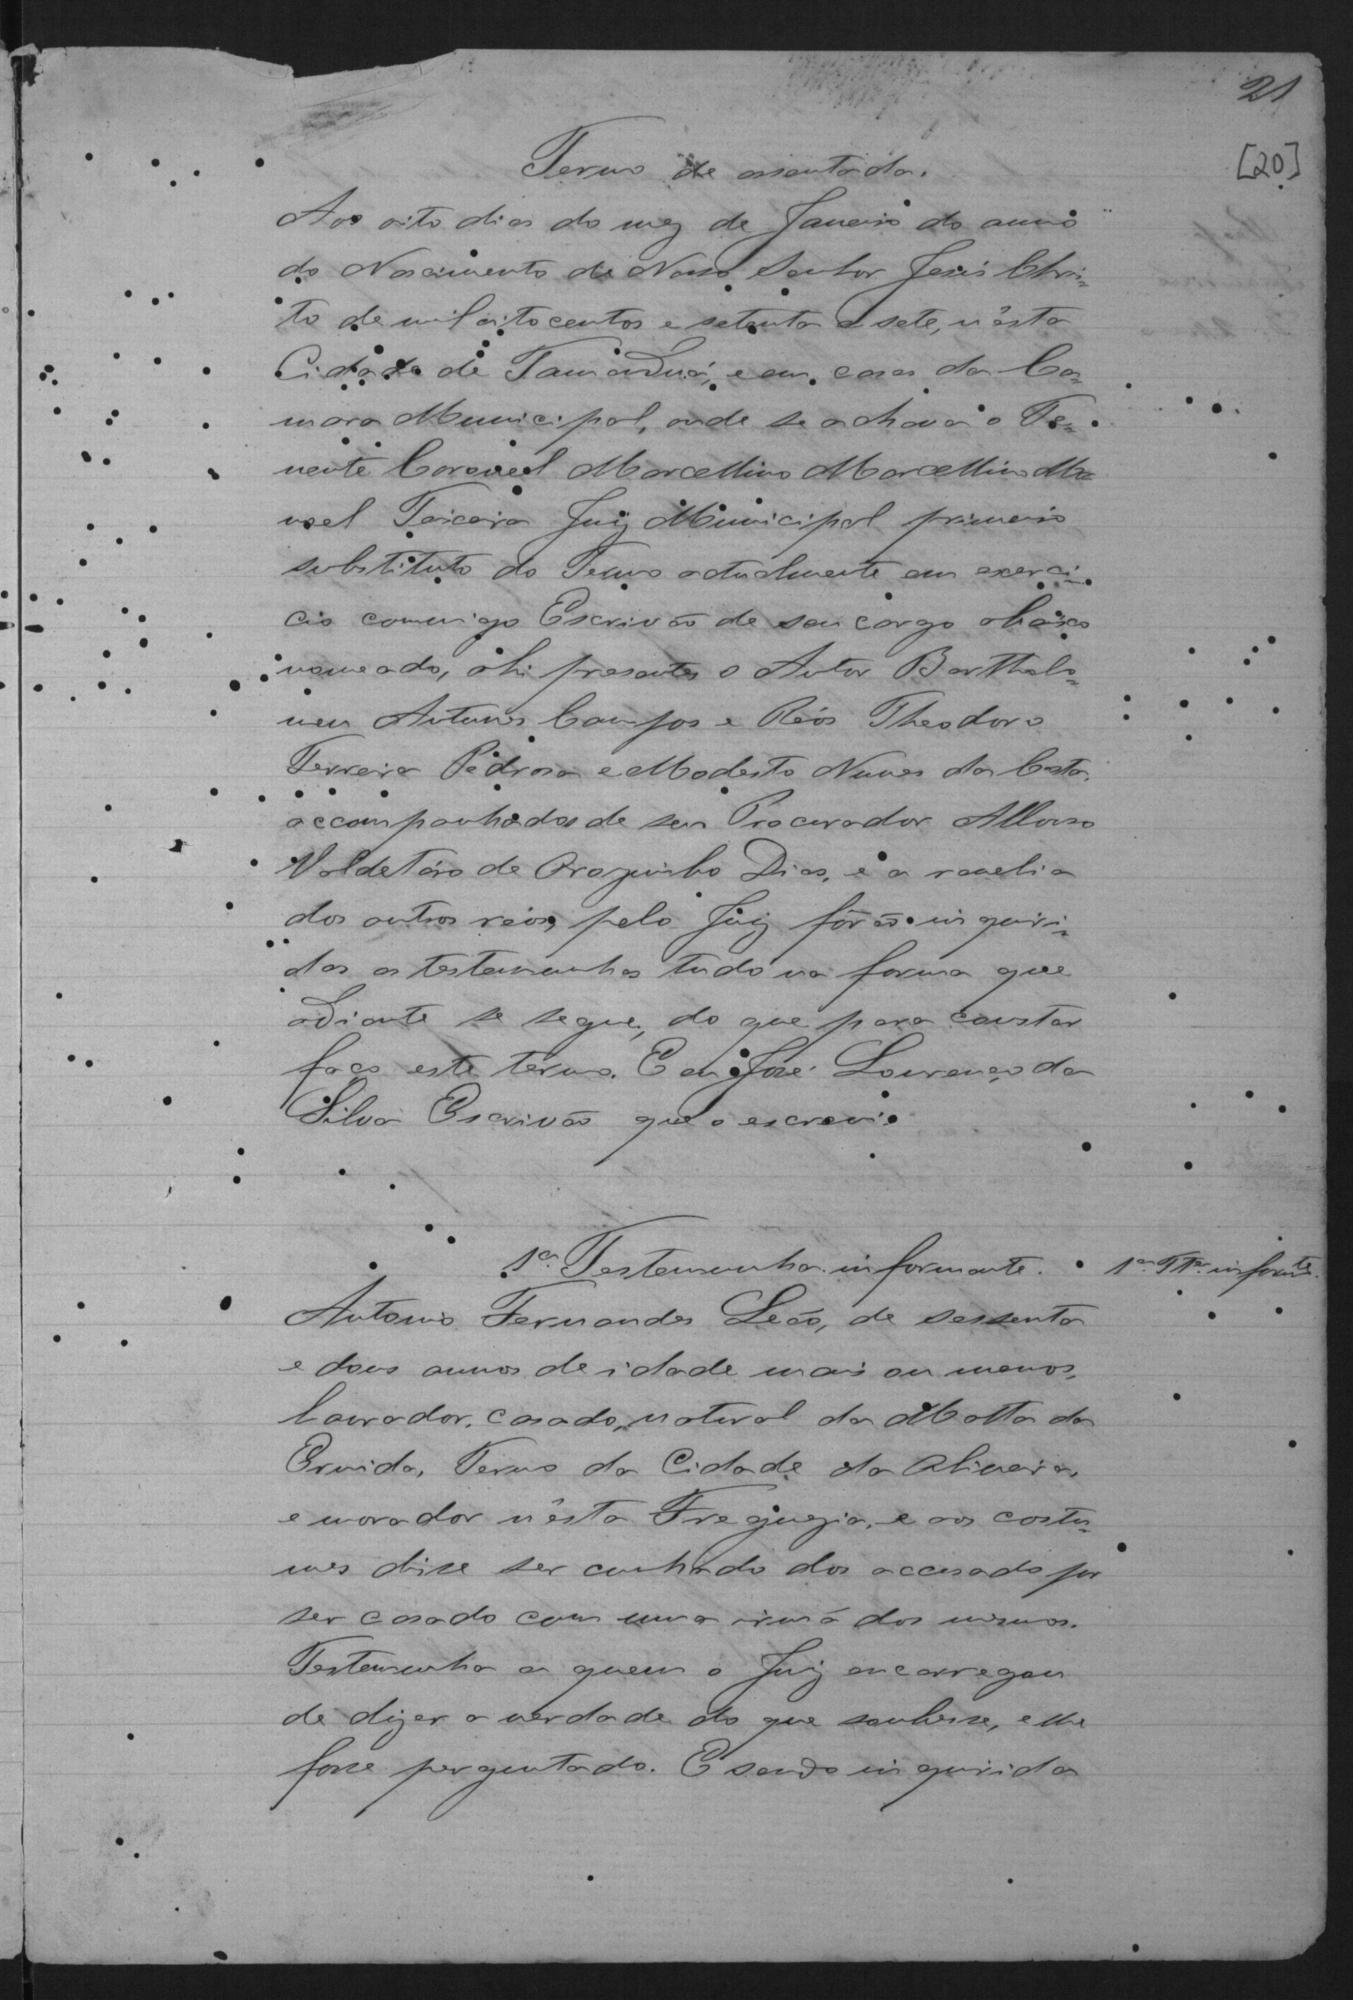 21
[20]
Termo de assentada.
Aos oito dias do mez de Janeiro do anno
do Nascimento de Nosso Senhor Jesús Chris-
to de mil oitocentos e setenta e sete, n'ésta
Cidade de Tamanduá, e em casa da Ca-
mara Municipal, onde se achava o Te-
nente Coronel Marcellino Marcellino Ma-
noel Teixeira Juiz Municipal primeiro
substituto do Termo actualmente em exerci-
cio commigo Escrivão de seu cargo abaixo
nomeado, ahi presentes o Autor Barthalo-
meu Antunes Campos e Réos Theodoro
Ferreira Pedrosa e Modesto Nunes da Costa,
accompanhados de seu Procurador Affonso
Valdetáro de Aragunho Dias, e a revelia
dos outros réos, pelo Juiz fôrão inquiri-
das as testemunhas tudo na forma que
adiante se segue, do que para constar
faço este termo. E eu José Lourenço da
Silva Escrivão que o escrevi.
1ª Testemunha informante.
1ª Ttª informte.
Antonio Fernandes Leão, de sessenta
e dous annos de idade mais ou menos,
lavrador, casado, natural da Matta da
Ermida, Termo da Cidade da Oliveira,
e morador n'ésta Freguezia, e aos costu-
mes disse ser cunhado dos accusado por
ser casado com uma irmã dos mesmos.
Testemunha a quem o Juiz encarregou
de dizer a verdade do que soubesse, e lhe
fosse perguntado. E sendo inquirida